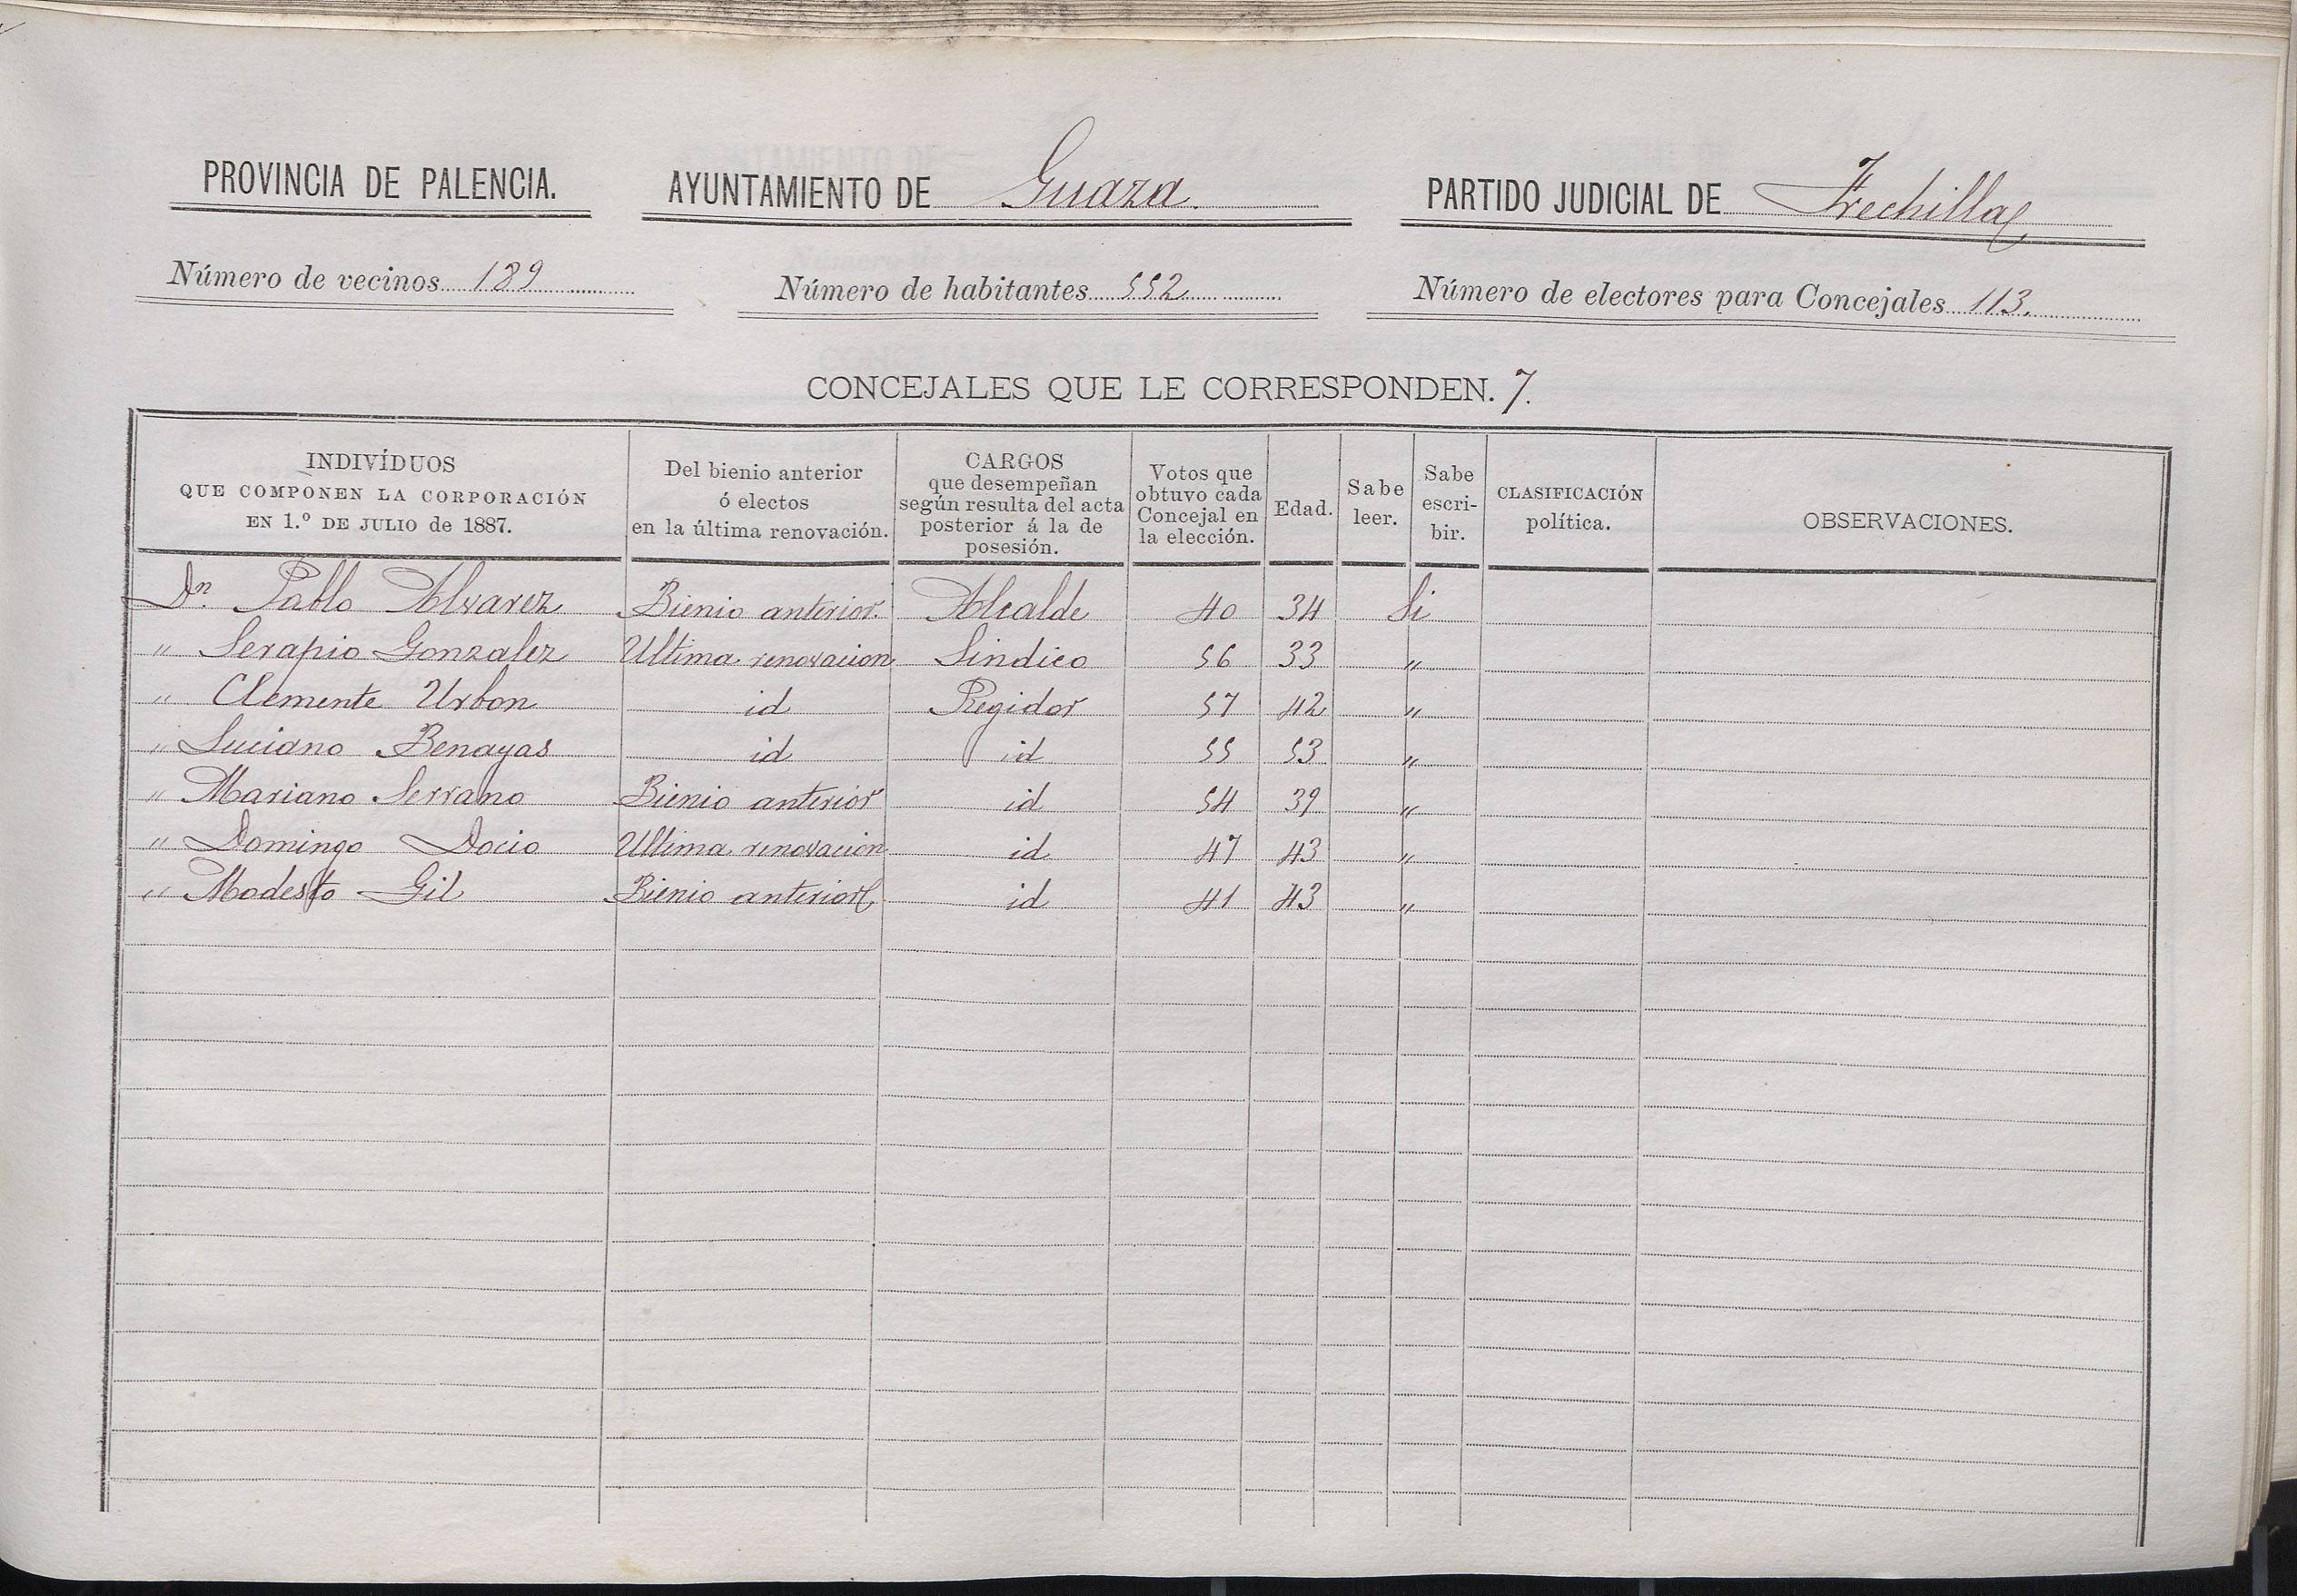 PROVINCIA DE PALENCIA. AYUNTAMIENTO DE Guaza. PARTIDO JUDICIAL DE Frechilla
Número de vecinos 189 Número de habitantes 552 Número de electores para Concejales 113.
CONCEJALES QUE LE CORRESPONDEN. 7.
INDIVÍDUOS QUE COMPONEN LA CORPORACIÓN EN 1.º DE JULIO de 1887. Del bienio anterior ó electos en la última renovación. CARGOS que desempeñan según resulta del acta posterior á la de posesión. Votos que obtuvo cada Concejal en la elección. Edad. Sabe leer. Sabe escri-bir. CLASIFICACIÓN política. OBSERVACIONES.
Dn. Pablo Alvarez Bienio anterior. Alcalde 40 34 Si
" Serapio Gonzalez Ultima renovacion Sindico 56 33 "
" Clemente Urbon id Regidor 57 42 "
" Luciano Benayas id id 55 53 "
" Mariano Serrano Bienio anterior id 54 39 "
" Domingo Docio Ultima renovacion id 47 43 "
" Modesto Gil Bienio anterior id 41 43 "